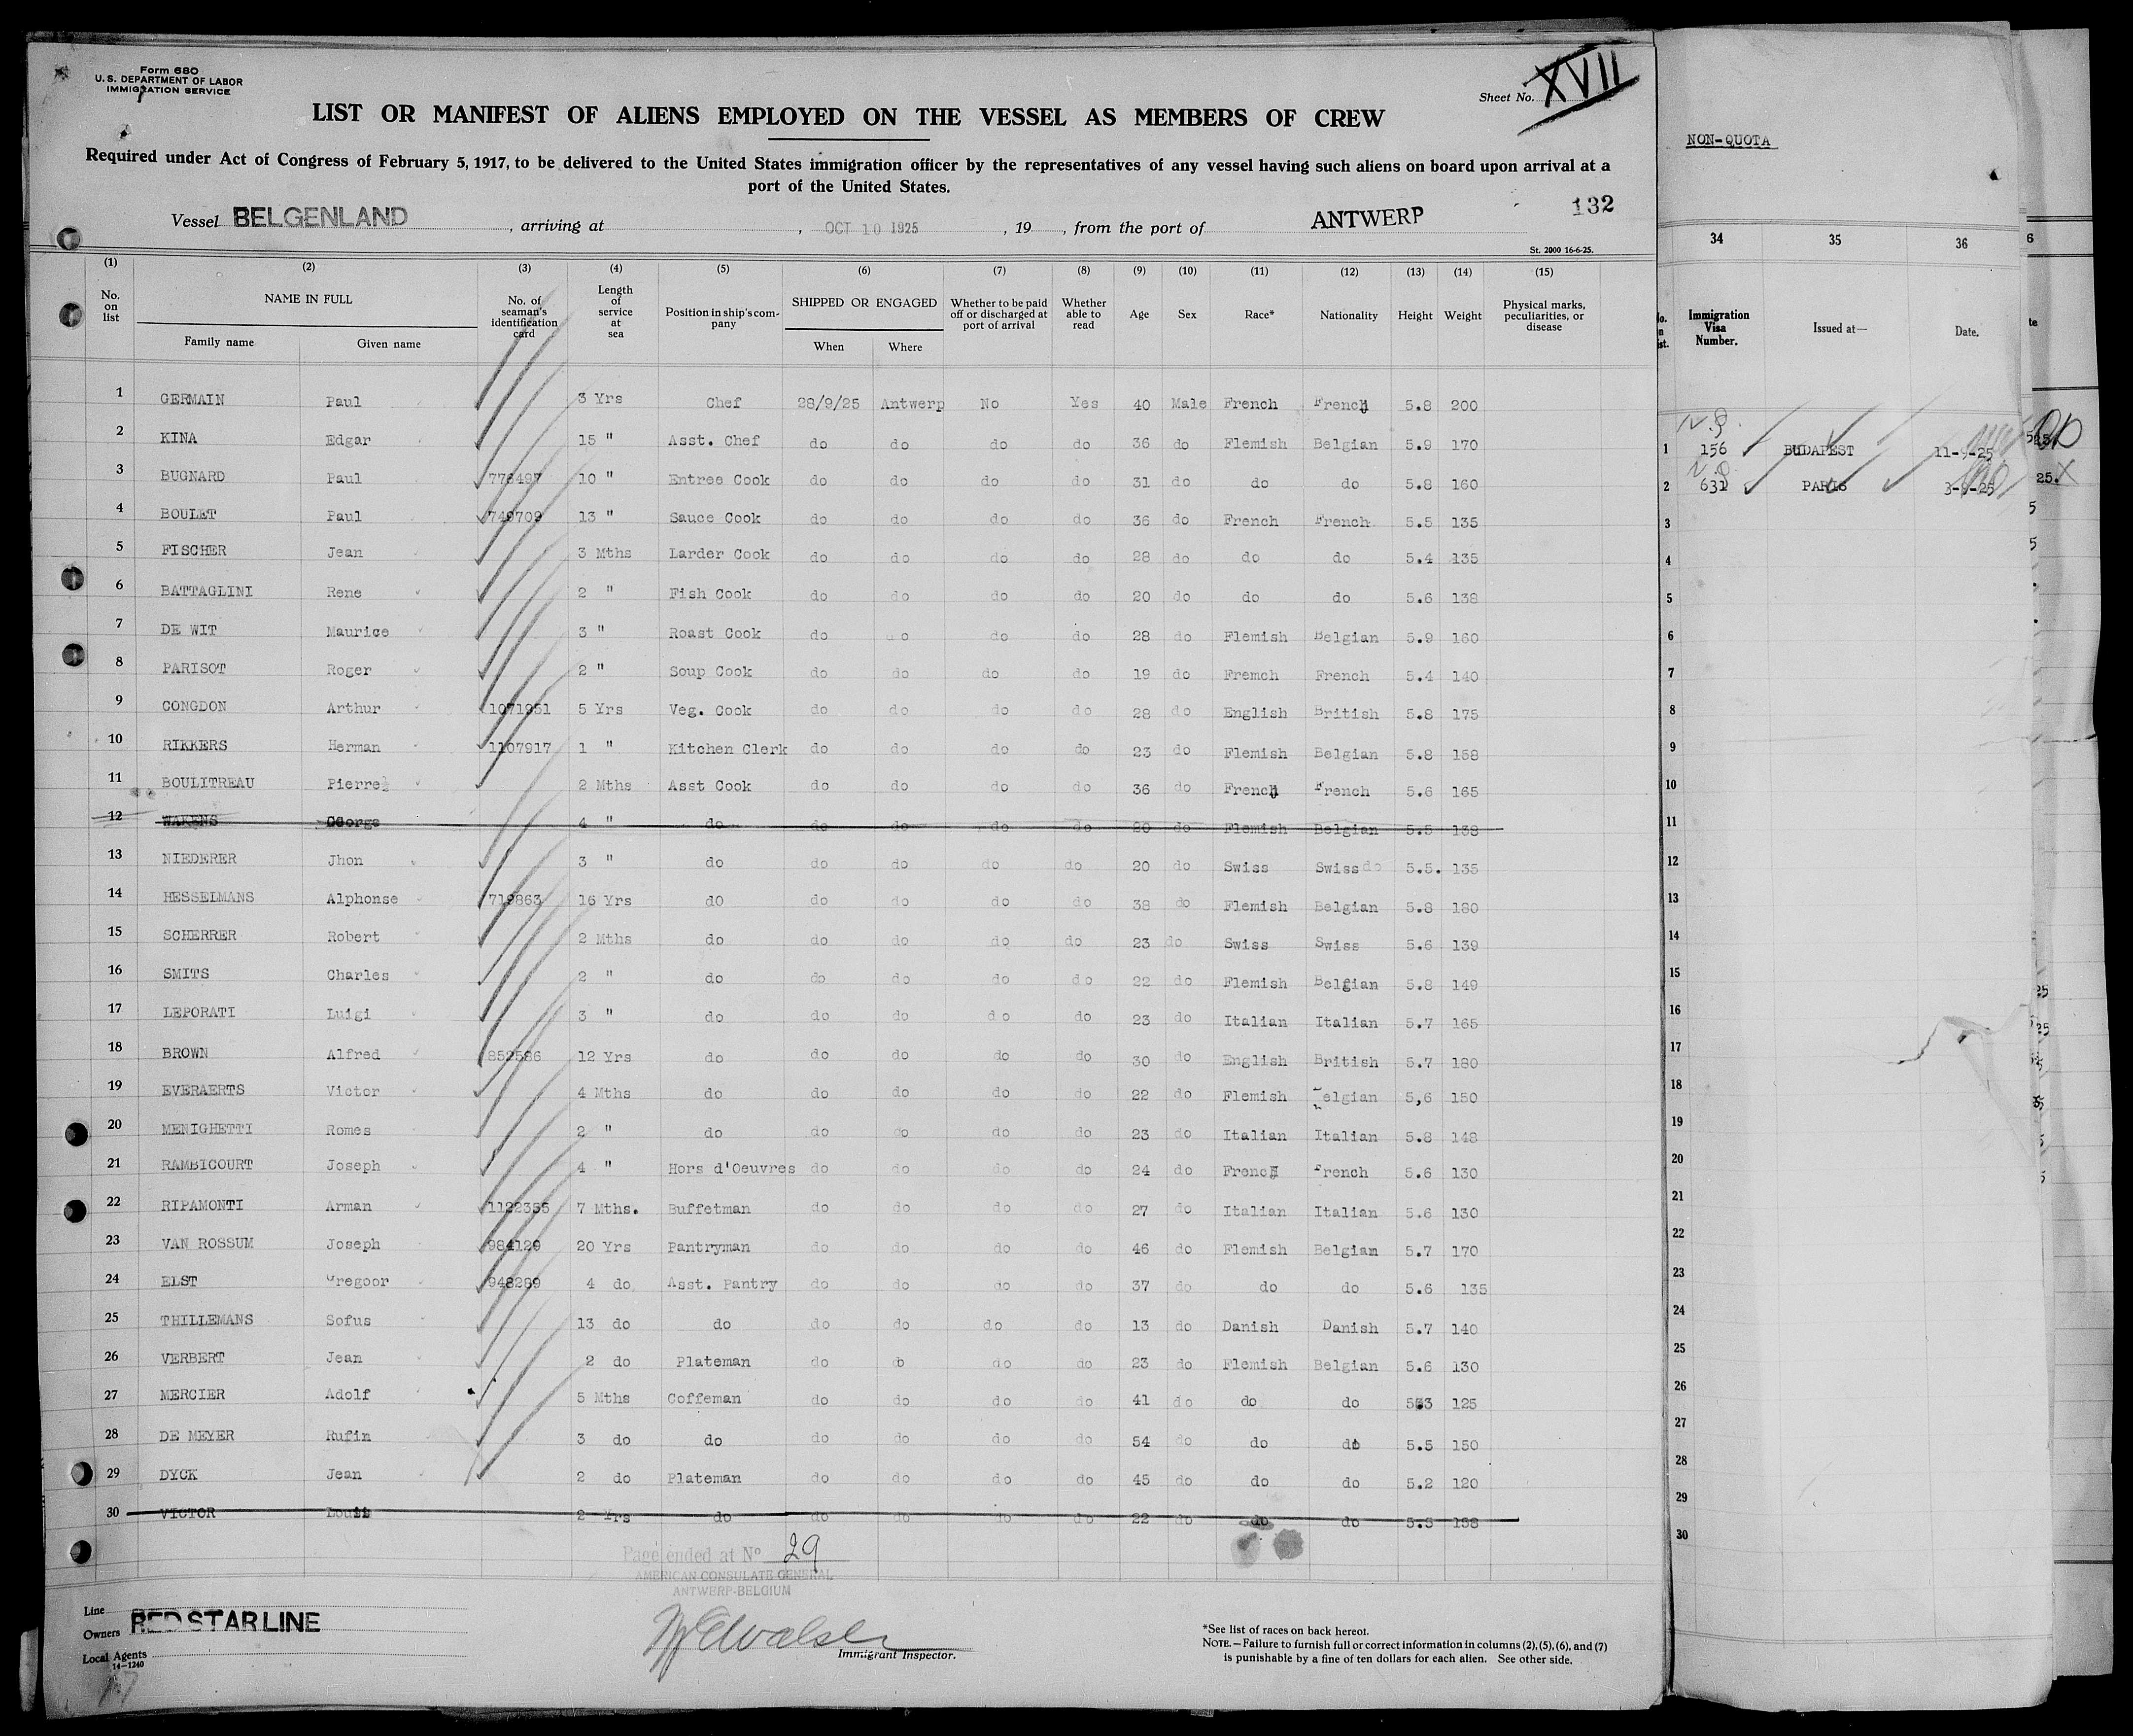 Form 680
U. S. DEPARTMENT OF LABOR
IMMIGRATION SERVICE
Sheet No. XVII
LIST OR MANIFEST OF ALIENS EMPLOYED ON THE VESSEL AS MEMBERS OF CREW
Required under Act of Congress of February 5, 1917, to be delivered to the United States immigration officer by the representatives of any vessel having such aliens on board upon arrival at a
port of the United States.
132
Vessel BELGENLAND , arriving at , OCT 10 1925 , 19 , from the port of ANTWERP
St. 2000 16-6-25.
(1) (2) (3) (4) (5) (6) (7) (8) (9) (10) (11) (12) (13) (14) (15)
No. on list NAME IN FULL Family name Given name No. of seaman's identification card Length of service at sea Position in ship's company SHIPPED OR ENGAGED When Where Whether to be paid off or discharged at port of arrival Whether able to read Age Sex Race* Nationality Height Weight Physical marks, peculiarities, or disease
1 GERMAIN Paul 3 Yrs Chef 28/9/25 Antwerp No Yes 40 Male French French 5.8 200
2 KINA Edgar 15 " Asst. Chef do do do do 36 do Flemish Belgian 5.9 170
3 BUGNARD Paul 10 " Entree Cook do do do do 31 do do do 5.8 160
4 BOULET Paul 749709 13 " Sauce Cook do do do do 36 do French French 5.5 135
5 FISCHER Jean 3 Mths Larder Cook do do do do 28 do do do 5.4 135
6 BATTAGLINI Rene 2 " Fish Cook do do do do 20 do do do 5.6 138
7 DE WIT Maurice 3 " Roast Cook do do do do 28 do Flemish Belgian 5.9 160
8 PARISOT Roger 2 " Soup Cook do do do do 19 do Fremch French 5.4 140
9 CONGDON Arthur 1071951 5 Yrs Veg. Cook do do do do 28 do English British 5.8 175
10 RIKKERS Herman 1107917 1 " Kitchen Clerk do do do do 23 do Flemish Belgian 5.8 158
11 BOULITREAU Pierre 2 Mths Asst Cook do do do do 36 do French French 5.6 165
12 WAKENS George 4 " do do do do do 20 do Flemish Belgian 5.5 138
13 NIEDERER Jhon 3 " do do do do do 20 do Swiss Swiss do 5.5. 135
14 HESSELMANS Alphonse 719863 16 Yrs dO do do do do 38 do Flemish Belgian 5.8 180
15 SCHERRER Robert 2 Mths do do do do do 23 do Swiss Swiss 5.6 139
16 SMITS Charles 2 " do do do do do 22 do Flemish Belgian 5.8 149
17 LEPORATI Luigi 3 " do do do do do 23 do Italian Italian 5.7 165
18 BROWN Alfred 852586 12 Yrs do do do do do 30 do English British 5.7 180
19 EVERAERTS Victor 4 Mths do do do do do 22 do Flemish Belgian 5,6 150
20 MENIGHETTI Romes 2 " do do do do do 23 do Italian Italian 5.8 148
21 RAMBICOURT Joseph 4 " Hors d'Oeuvres do do do do 24 do French French 5.6 130
22 RIPAMONTI Arman 1122355 7 Mths. Buffetman do do do do 27 do Italian Italian 5.6 130
23 VAN ROSSUM Joseph 984129 20 Yrs Pantryman do do do do 46 do Flemish Belgian 5.7 170
24 ELST Gregoor 948289 4 do Asst. Pantry do do do do 37 do do do 5.6 135
25 THILLEMANS Sofus 13 do do do do do do 13 do Danish Danish 5.7 140
26 VERBERT Jean 2 do Plateman do do do do 23 do Flemish Belgian 5.6 130
27 MERCIER Adolf 5 Mths Coffeman do do do do 41 do do do 5.3 125
28 DE MEYER Rufin 3 do do do do do do 54 do do do 5.5 150
29 DYCK Jean 2 do Plateman do do do do 45 do do do 5.2 120
30 VICTOR Louis 2 Yrs do do do do do 22 do do do 5.5 138
Page ended at No 29
AMERICAN CONSULATE GENERAL
ANTWERP-BELGIUM
Line
Owners RED STAR LINE
Local Agents
14-1240
17
Immigrant Inspector.
*See list of races on back hereof.
NOTE.—Failure to furnish full or correct information in columns (2), (5), (6), and (7)
is punishable by a fine of ten dollars for each alien. See other side.
NON-QUOTA
34 35 36
Immigration Visa Number. Issued at— Date.
1 156 BUDAPEST 11-9-25
2 631 PARIS 3-9-25
3
4
5
6
7
8
9
10
11
12
13
14
15
16
17
18
19
20
21
22
23
24
25
26
27
28
29
30